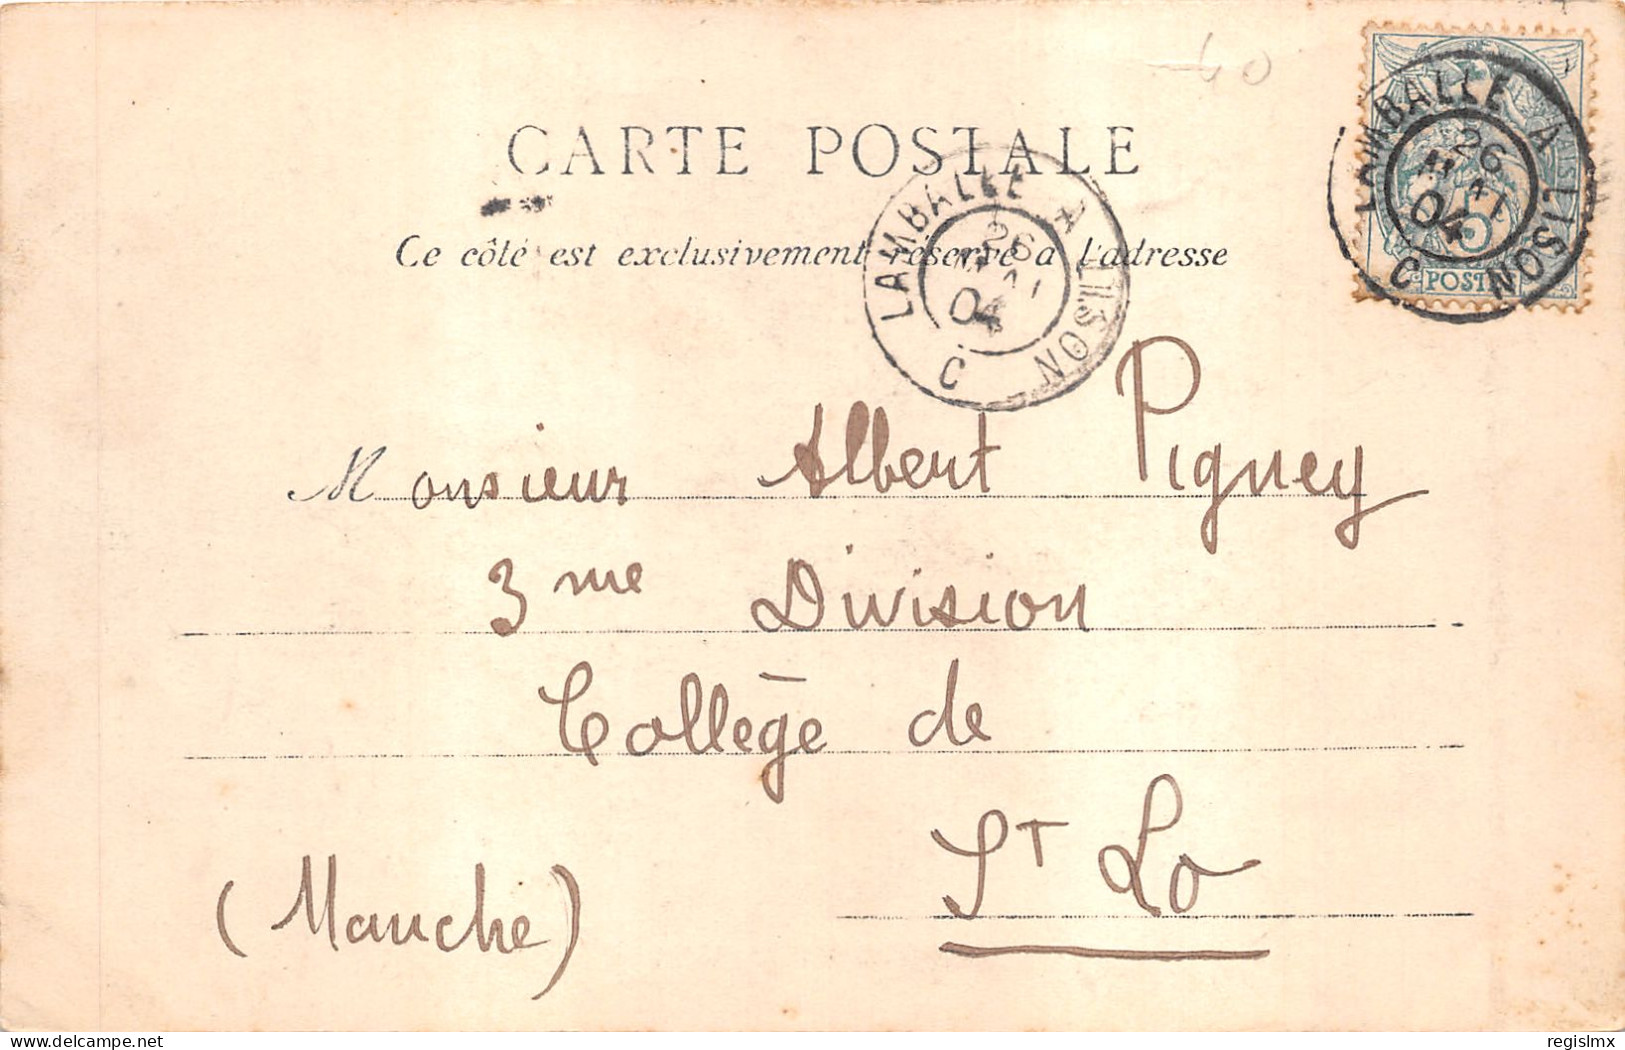 40
CARTE POSTALE
Ce côté est exclusivement réservé a l'adresse
LAMBALLE A LISON
26
MAI
04
C
LAMBALLE A LISON
26
MAI
04
C
5
POSTES
Monsieur Albert Pigney
3me Division
Collège de
St Lo
(Manche)
regislmx